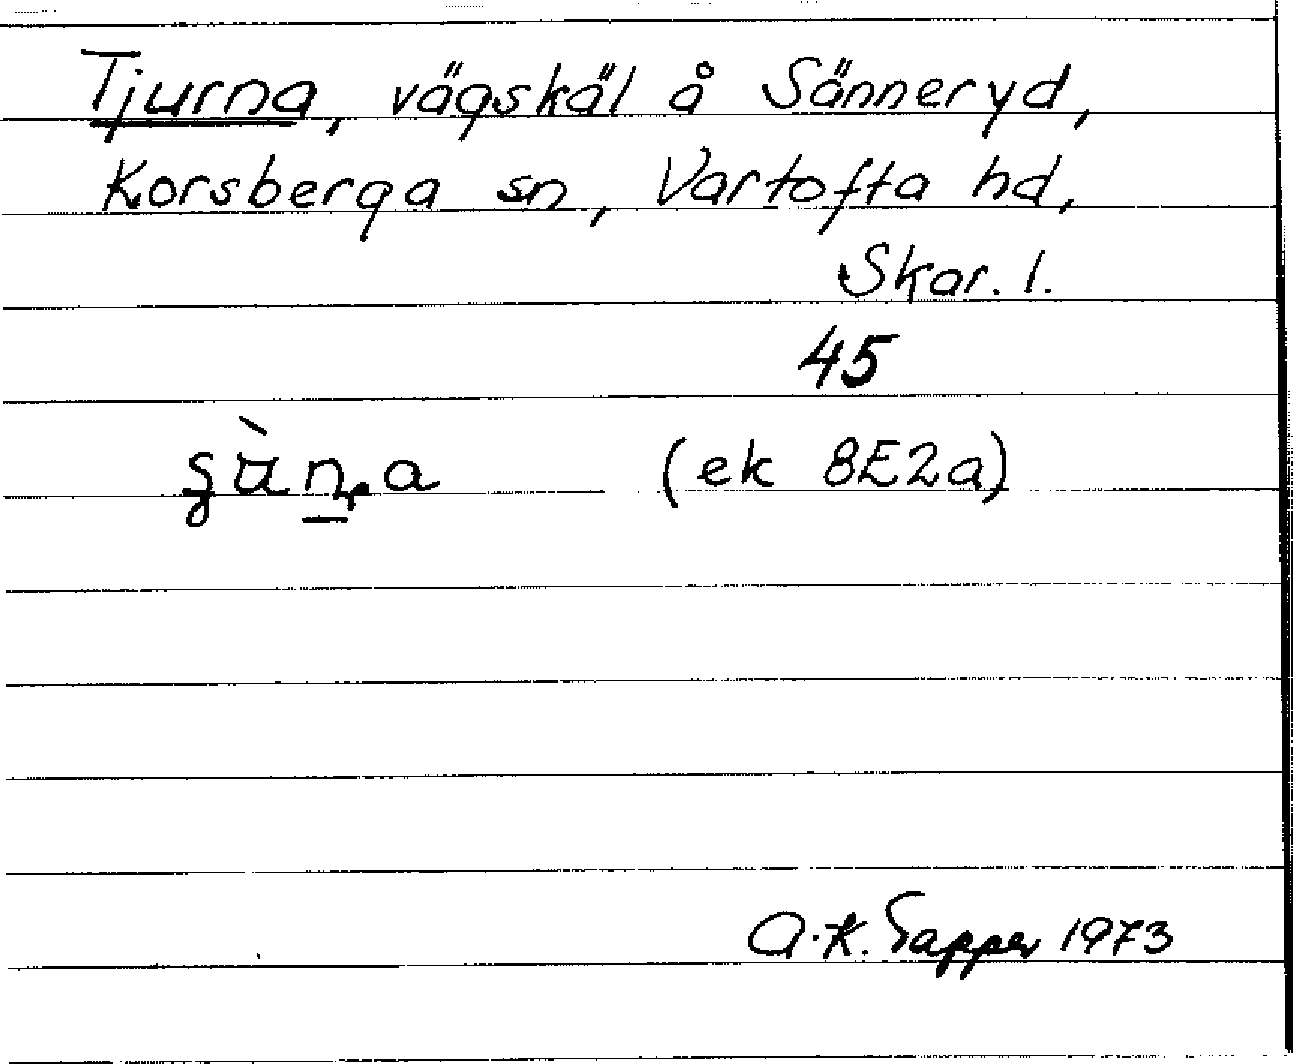 Tjurna, vägskäl å Sänneryd,
Korsberga sn, Vartofta hd,
Skar. l.
45
(ek 8E2a)
A.K. Tapper 1973